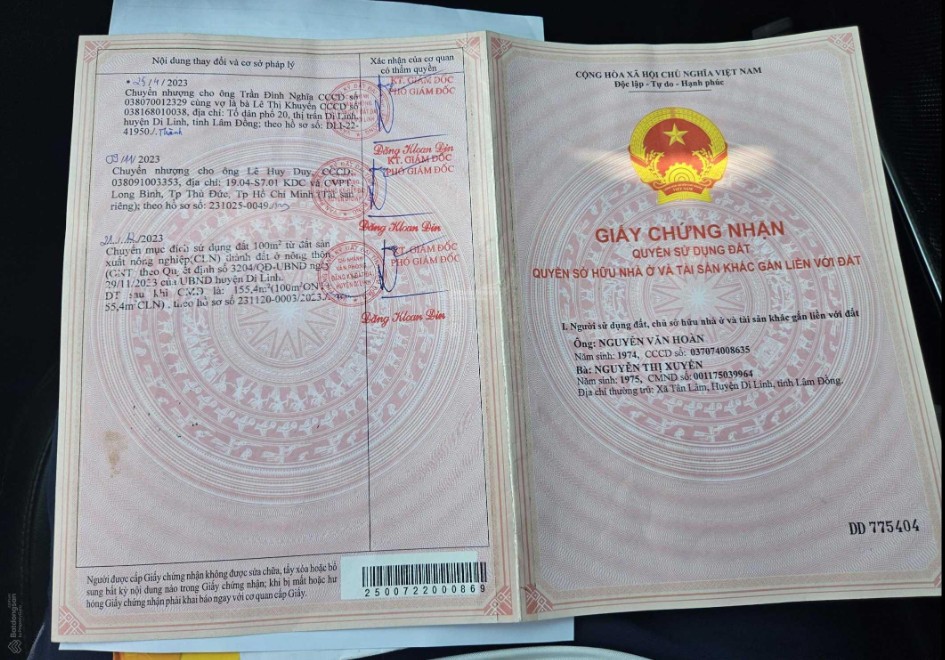 Nội dung thay đổi và cơ sở pháp lý
Xác nhận của cơ quan
có thẩm quyền
25/4/2023
Chuyển nhượng cho ông Trần Đình Nghĩa CCCD số
038070012329 cùng vợ là bà Lê Thị Khuyên CCCD số
038168010038, địa chỉ: Tổ dân phố 20, thị trấn Di Linh,
huyện Di Linh, tỉnh Lâm Đồng; theo hồ sơ số: DL1-22-
41950./. Thành
KT. GIÁM ĐỐC
PHÓ GIÁM ĐỐC
Đăng Kloan Din
03/11/2023
Chuyển nhượng cho ông Lê Huy Duy, CCCD:
038091003353, địa chỉ: 19.04-S7.01 KDC và CVPT,
Long Bình, Tp Thủ Đức, Tp Hồ Chí Minh (Tài sản
riêng); theo hồ sơ số: 231025-0049
KT. GIÁM ĐỐC
PHÓ GIÁM ĐỐC
Đăng Kloan Din
/2023
Chuyển mục đích sử dụng đất 100m² từ đất sản
xuất nông nghiệp(CLN) thành đất ở nông thôn
(ONT) theo Quyết định số 3204/QĐ-UBND ngày
29/11/2023 của UBND huyện Di Linh.
DT sau khi CMĐ là: 155,4m²(100m²ONT+
55,4m²CLN), theo hồ sơ số 231120-0003/2023
KT. GIÁM ĐỐC
PHÓ GIÁM ĐỐC
CHI NHÁNH
VĂN PHÒNG
ĐĂNG KÝ ĐẤT ĐAI
HUYỆN DI LINH
Đăng Kloan Din
Người được cấp Giấy chứng nhận không được sửa chữa, tẩy xóa hoặc bổ
sung bất kỳ nội dung nào trong Giấy chứng nhận; khi bị mất hoặc hư
hỏng Giấy chứng nhận phải khai báo ngay với cơ quan cấp Giấy.
2500722000869
CỘNG HÒA XÃ HỘI CHỦ NGHĨA VIỆT NAM
Độc lập - Tự do - Hạnh phúc
VIỆT NAM
GIẤY CHỨNG NHẬN
QUYỀN SỬ DỤNG ĐẤT
QUYỀN SỞ HỮU NHÀ Ở VÀ TÀI SẢN KHÁC GẮN LIỀN VỚI ĐẤT
I. Người sử dụng đất, chủ sở hữu nhà ở và tài sản khác gắn liền với đất
Ông: NGUYỄN VĂN HOÀN
Năm sinh: 1974, CCCD số: 037074008635
Bà: NGUYỄN THỊ XUYÊN
Năm sinh: 1975, CMND số: 001175039964
Địa chỉ thường trú: Xã Tân Lâm, Huyện Di Linh, tỉnh Lâm Đồng.
DD 775404
Batdongsan